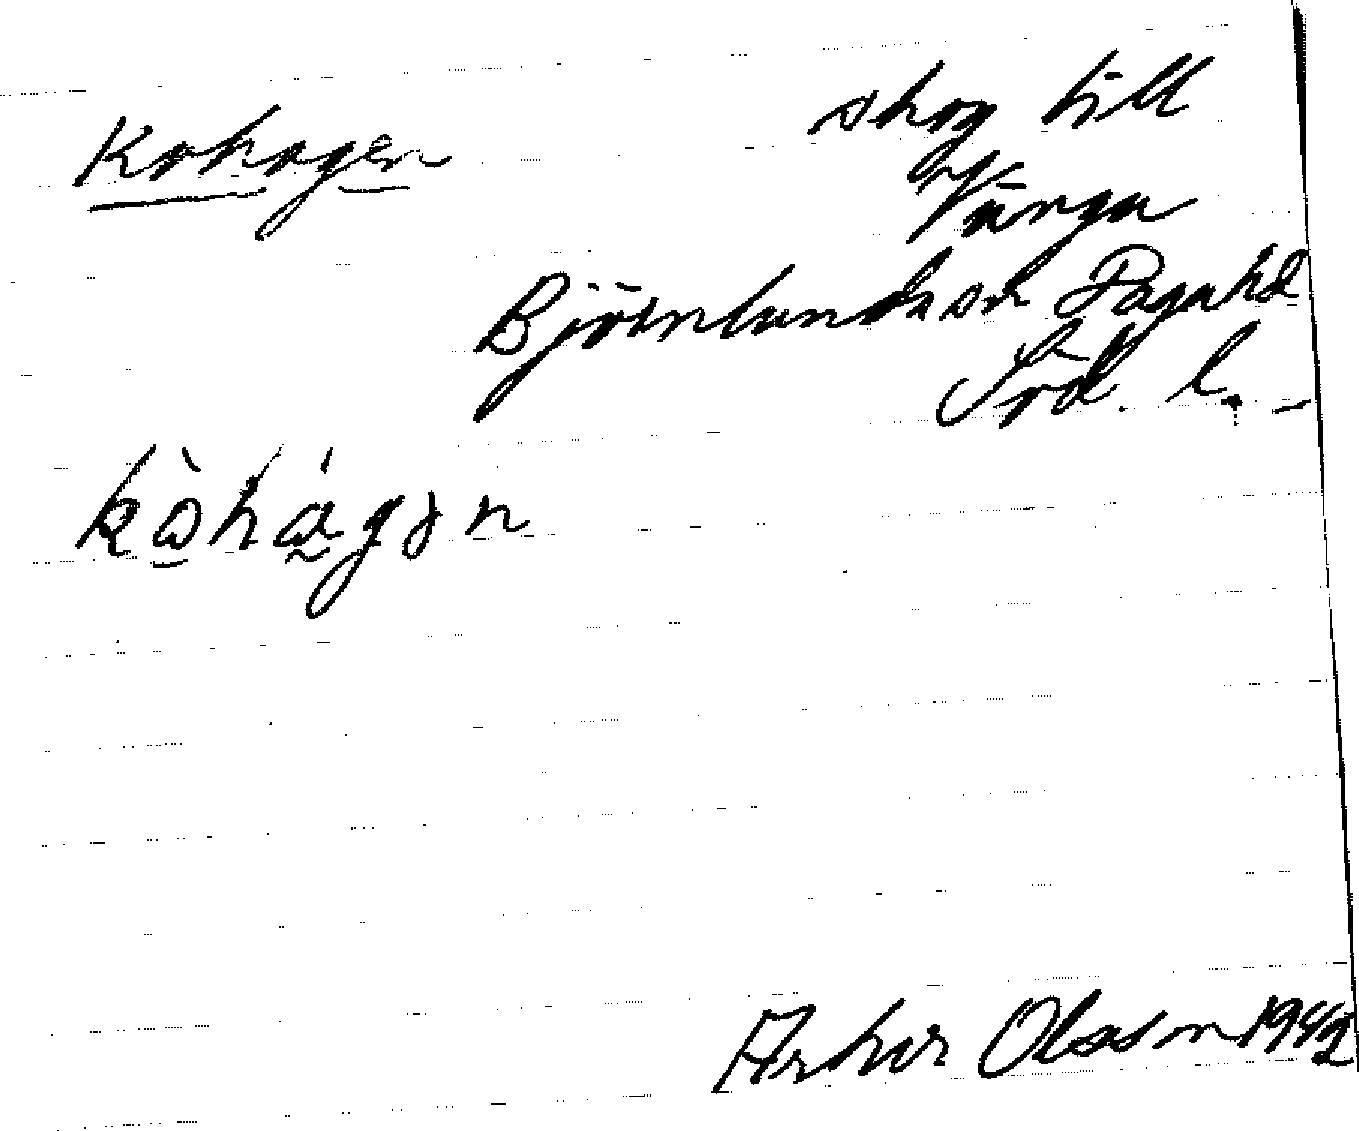 Kohagen
skog till
Vänga
Björnlunda sn Daga hd
Söd. l.
kò̱hágən
Arthur Olsson 1942